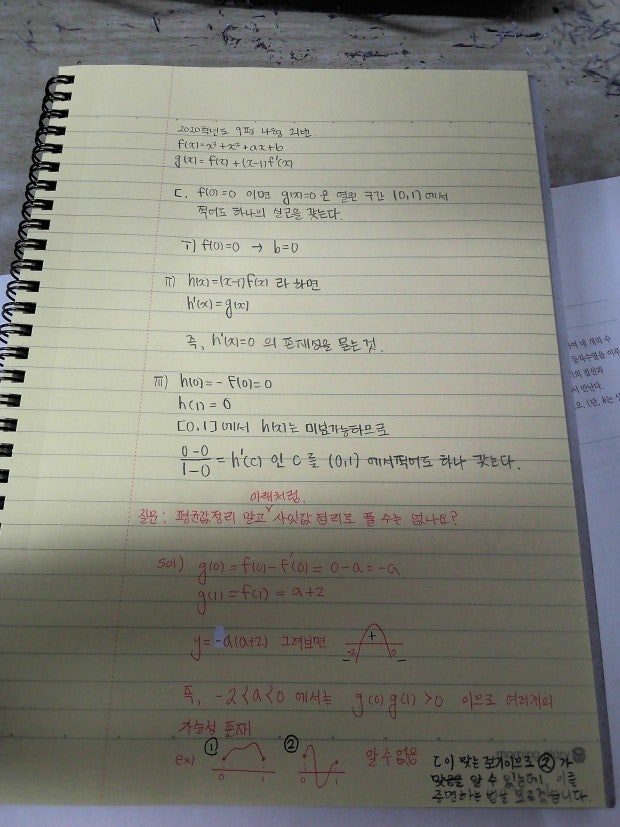 2020학년도 9평 나형 21번
f(x)=x³+x²+ax+b
g(x)=f(x)+(x-1)f'(x)
ㄷ. f(0)=0 이면 g(x)=0은 열린 구간 (0,1)에서
적어도 하나의 실근을 갖는다.
ⅰ) f(0)=0 → b=0
ⅱ) h(x)=(x-1)f(x) 라 하면
h'(x)=g(x)
즉, h'(x)=0 의 존재성을 묻는 것.
ⅲ) h(0)=-f(0)=0
h(1)=0
[0,1]에서 h(x)는 미분가능하므로
(0-0)/(1-0) = h'(c) 인 c를 (0,1)에서 적어도 하나 갖는다.
아래처럼
질문: 평균값정리 말고 사잇값 정리로 풀 수는 없나요?
sol) g(0)=f(0)-f'(0)=0-a=-a
g(1)=f(1)=a+2
y=-a(a+2) 그려보면 + -2 0 - -
즉, -2<a<0 에서는 g(0)g(1)>0 이므로 여러개의
가능성 존재
ex) ① 0 1 ② 0 1 알 수 없음
ㄷ이 맞는 보기이므로 ②가
맞음을 알 수 있는데, 이를
증명하는 법을 모르겠습니다.
morning glory
여 네 개의 수
등차수열을 이루
의 접선과
서 만난다.
오. (단, k는 상